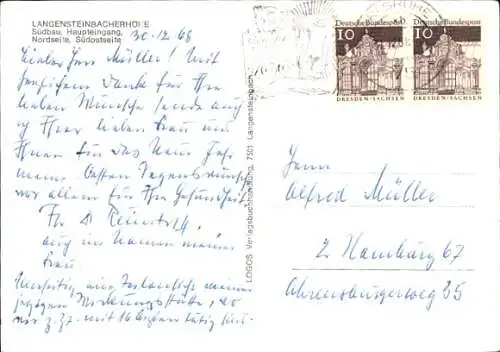 LANGENSTEINBACHERHÖHE
Südbau, Haupteingang,
Nordseite, Südostseite
30.12.68
Lieber Herr Müller! Mit
herzlichem Dank für Ihre
lieben Wünsche sende auch
ich Ihrer lieben Frau und
Ihnen für das Neue Jahr
meine besten Segenswünsche
vor allem für Ihre Gesundheit
Ihr
auch im Namen meiner
Frau
Umseitig eine Teilansicht meiner
jetzigen Wirkungsstätte, wo
wir z.Zt. mit 16 tätig
LOGOS Verlagsbuchhandlung, 7501 Langensteinbach
Deutsche Bundespost
10
DRESDEN/SACHSEN
Deutsche Bundespost
10
DRESDEN/SACHSEN
Herrn
Alfred Müller
2 Hamburg 67
Ahrensburgerweg 35